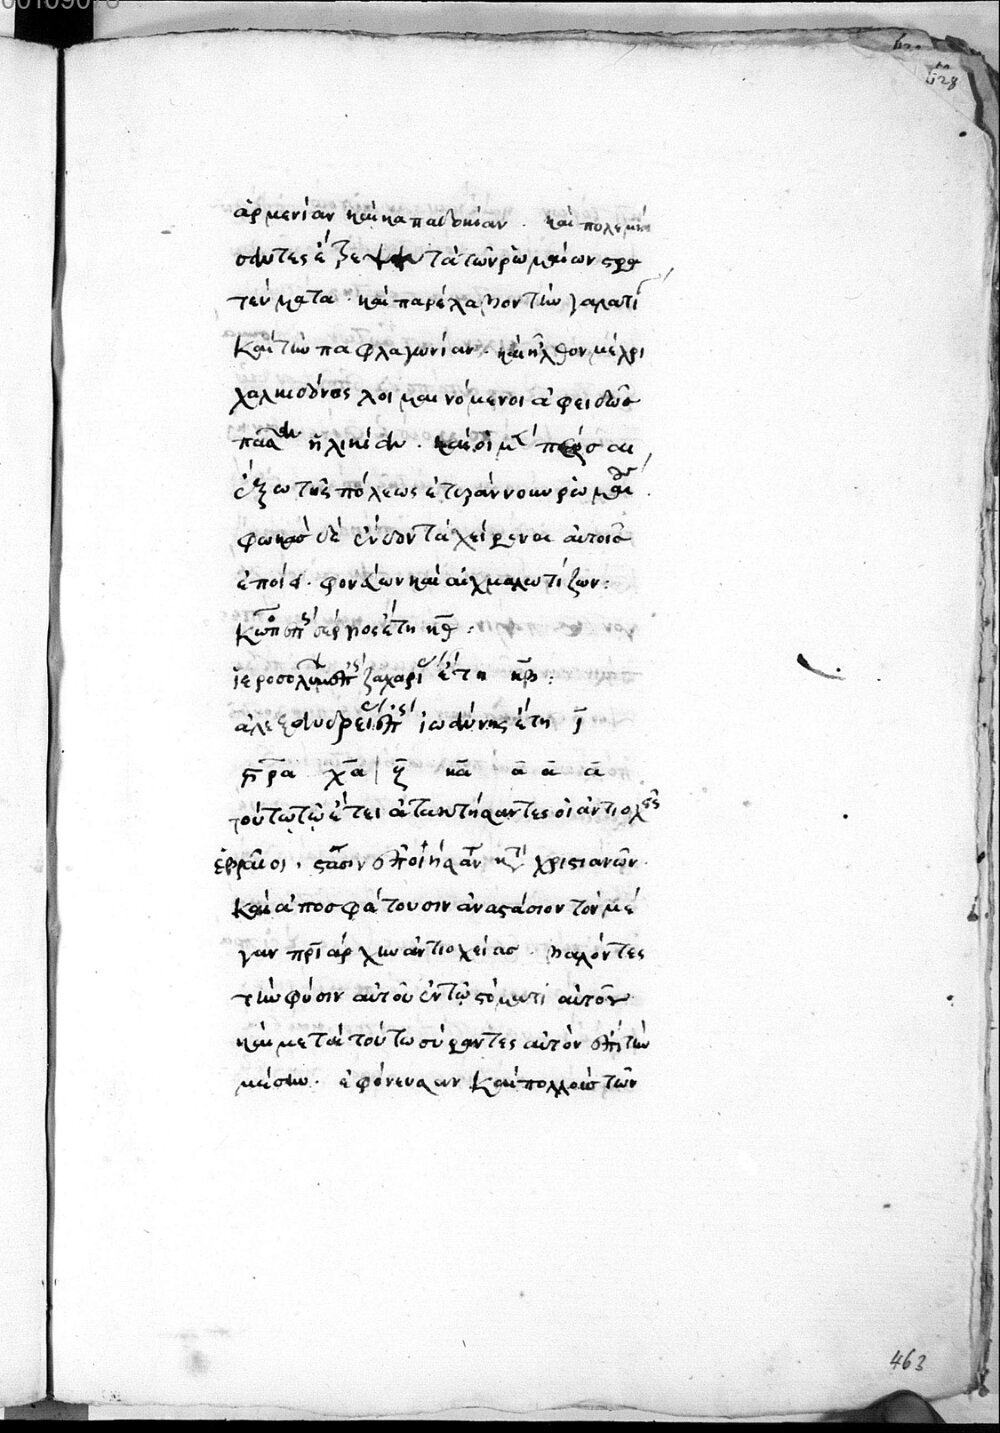 628
ἀρμενίαν καὶ καππαδοκίαν . καὶ πολεμή
σαντες ἔτρεψαν τὰ τῶν ῥωμαίων στρα
τεύματα . καὶ παρέλαβον τὴν γαλατί
καὶ τὴν παφλαγωνίαν . καὶ ἦλθον μέχρι
χαλκιδόνος λοιμαινόμενοι ἀφειδῶς
πᾶσαν ἡλικίαν . καὶ οἱ μ πέρσαι
ἔξω τῆς πόλεως ἐτυράννουν ῥωμαί
φωκᾶσ δὲ ἔνδον τὰ χείρονα αὐτοῖσ
ἐποίει . φονεύων καὶ αἰχμαλωτίζων :
Κωπ σέργιος ἔτη κθ :
ἱεροσολύμ ζαχαρί ἔτη κβ :
ἀλεξανδρεί ἰωάννης ἔτη ι
χα ζ κα α α α
τούτω τῷ ἔτει ἀτακτήσαντες οἱ ἀντιοχ
ἑβραῖοι . στάσιν ἐποίησαν κ χριστιανῶν
καὶ ἀποσφάτουσιν ἀναστάσιον τὸν μέ
γαν πριάρχην ἀντιοχείασ . βαλόντες
τὴν φύσιν αὐτοῦ ἐν τῷ στόματι αὐτοῦ
καὶ μετὰ τοῦτο σύραντες αὐτὸν ἐπὶ τὴν
μέσην . ἐφόνευσαν καὶ πολλοὺσ τῶν
463